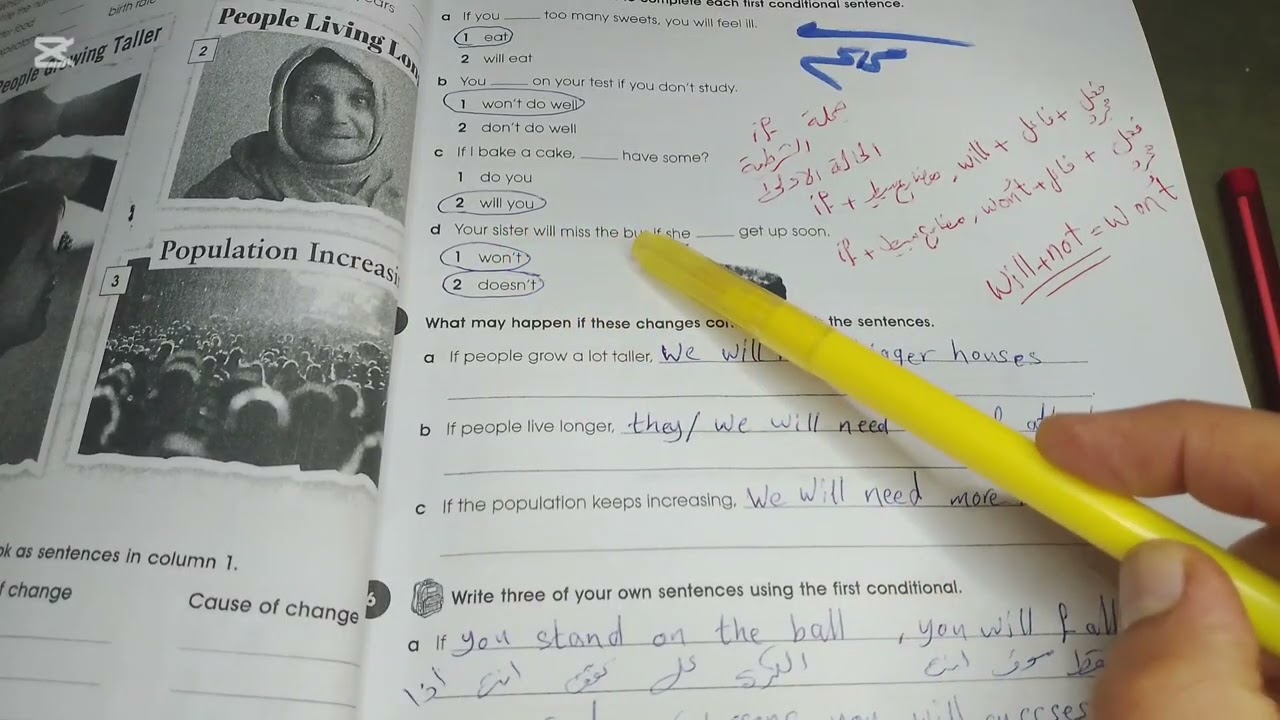 birth rate
People Growing Taller
2
People Living Lon
3
Population Increasi
ok as sentences in column 1.
f change
Cause of change
complete each first conditional sentence.
a If you ____ too many sweets, you will feel ill.
1 eat
2 will eat
b You ____ on your test if you don't study.
1 won't do well
2 don't do well
c If I bake a cake, ____ have some?
1 do you
2 will you
d Your sister will miss the bu if she ____ get up soon.
1 won't
2 doesn't
جملة if
الشرطية
الحالة الاولى
if + مضارع بسيط , will + فاعل + فعل مجرد
if + مضارع بسيط , won't + فاعل + فعل مجرد
Will + not = won't
What may happen if these changes con the sentences.
a If people grow a lot taller, we will houses
b If people live longer, they/ we will need
c If the population keeps increasing, we will need more
6 Write three of your own sentences using the first conditional.
a If you stand on the ball , you will fall
أذا انت على الكرة انت سوف